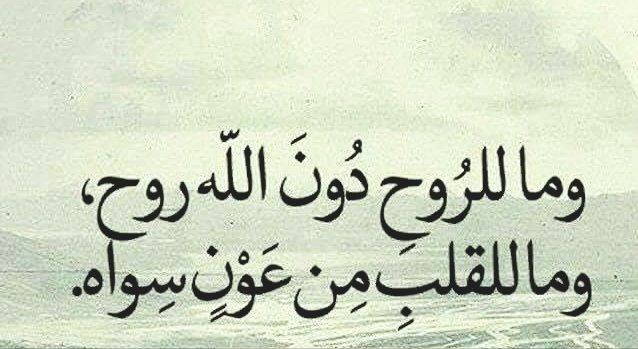 وما للرُوحِ دُونَ اللّه روح،
وما للقلبِ مِن عَوْنٍ سِواه.